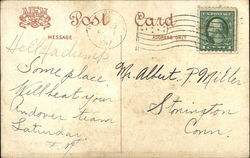 Post Card
MESSAGE
ADDRESS ONLY
Some place
Will beat your
Andover team
Saturday
Mr. Albert F. Miller
Stonington
Conn.